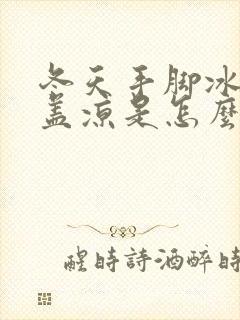 冬天手脚冰
盖凉是怎麼
醒時詩酒醉時